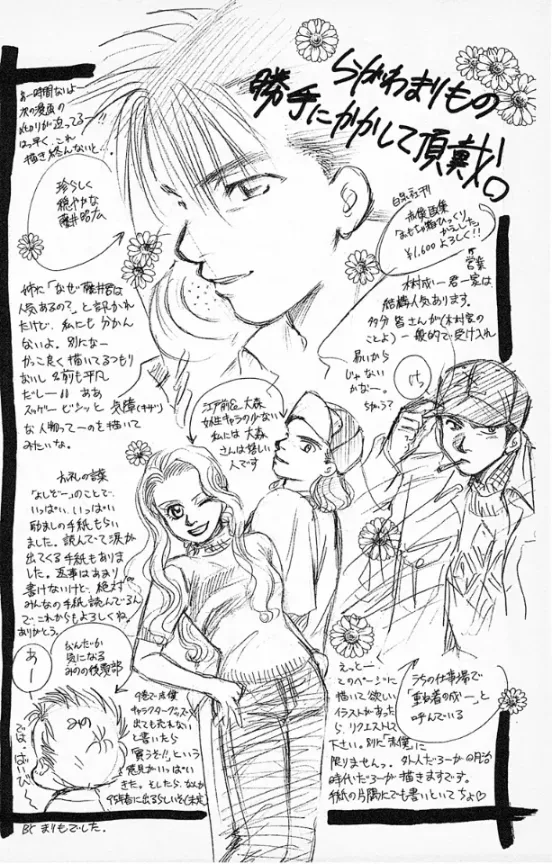 らがわまりもの
勝手にかかして頂戴!。
あー時間ないよ
次の漫画の
〆切りが迫ってるー!!
はっ早く、これ
描き終んないと…
珍らしく
穏やかな
藤井昭広
白泉社刊
赤僕画集
¥1,600よろしく!!
営業
木村成一君一家は
結構人気あります。
多分皆さんが(木村家の
ことよ)一般的で受け入れ
易いから
じゃない
かなー。
ちがう?
けっ
姉に「なぜ藤井君は
人気あるの?」と訊かれ
たけど、私にも分かん
ないよ。別になー
かっこ良く描いてるつもり
ないし名前も平凡
だしー!! ああ
スッゲービシッと気障(キザ)
な人物ってーのを描いて
みたいな。
江戸前&大森
女生キャラの少ない
私には大森
さんは嬉しい
人です
お礼の言葉
「よしぞー」のことで、
いっぱい、いっぱい
励ましの手紙もらい
ました。読んでて涙が
出てくる手紙もありま
した。返事はあまり
書けないけど、絶対
みんなの手紙読んでるん
で、これからもよろしくね。
ありがとう。
なんだか
気になる
みのの後頭部
あー
みの
では、ばいび
BY まりもでした。
9巻で赤僕
キャラクターグッズ
出ても売れない
と書いたら
「買うぞ!!」という
意見がいっぱい
きた。そしたら、なんか
えっとー!
このページに
描いて欲しい
イラストがあった
ら、リクエストして
下さい。別に「赤僕」に
限りませんっ。外人だろーが明治
時代だろーが描きますです。
手紙の片隅にでも書いといてちょ♡
うちの仕事場で
「重ね着の成一」と
呼んでいる